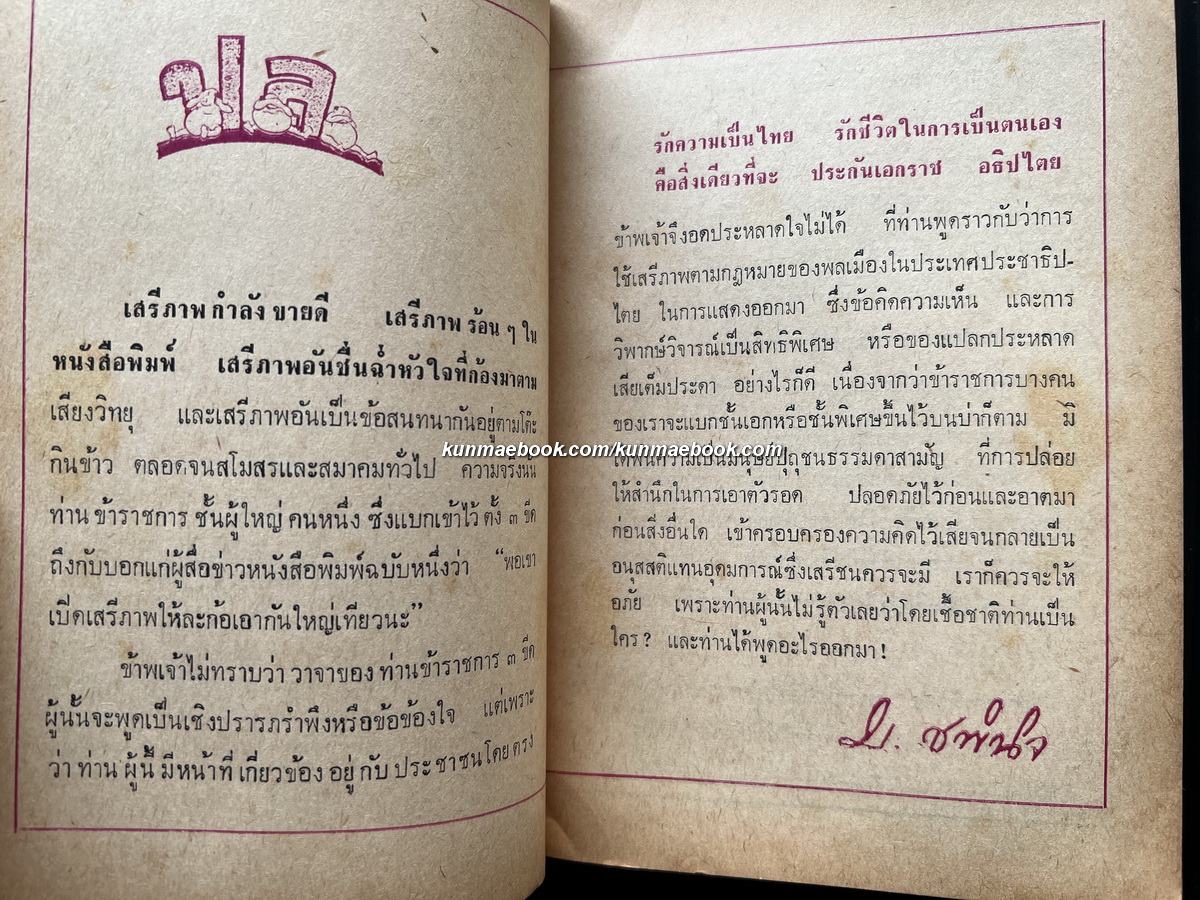 ปล
เสรีภาพ กำลัง ขายดี เสรีภาพ ร้อน ๆ ใน
หนังสือพิมพ์ เสรีภาพอันชื่นฉ่ำหัวใจที่ก้องมาตาม
เสียงวิทยุ และเสรีภาพอันเป็นข้อสนทนากันอยู่ตามโต๊ะ
กินข้าว ตลอดจนสโมสรและสมาคมทั่วไป ความจริงนั้น
ท่าน ข้าราชการ ชั้นผู้ใหญ่ คนหนึ่ง ซึ่งแบกเข้าไว้ ตั้ง ๓ ขีด
ถึงกับบอกแก่ผู้สื่อข่าวหนังสือพิมพ์ฉบับหนึ่งว่า “พอเขา
เปิดเสรีภาพให้ละก้อเอากันใหญ่เทียวนะ”
ข้าพเจ้าไม่ทราบว่า วาจาของ ท่านข้าราชการ ๓ ขีด
ผู้นั้นจะพูดเป็นเชิงปรารภรำพึงหรือข้อข้องใจ แต่เพราะ
ว่า ท่าน ผู้นี้ มีหน้าที่ เกี่ยวข้อง อยู่ กับ ประชาชนโดยตรง
รักความเป็นไทย รักชีวิตในการเป็นตนเอง
คือสิ่งเดียวที่จะ ประกันเอกราช อธิปไตย
ข้าพเจ้าจึงอดประหลาดใจไม่ได้ ที่ท่านพูดราวกับว่าการ
ใช้เสรีภาพตามกฎหมายของพลเมืองในประเทศประชาธิป-
ไตย ในการแสดงออกมา ซึ่งข้อคิดความเห็น และการ
วิพากษ์วิจารณ์เป็นสิทธิพิเศษ หรือของแปลกประหลาด
เสียเต็มประดา อย่างไรก็ดี เนื่องจากว่าข้าราชการบางคน
ของเราจะแบกชั้นเอกหรือชั้นพิเศษขึ้นไว้บนบ่าก็ตาม มิ
kunmaebook.com/kunmaebook.com
ได้พ้นความเป็นมนุษย์ปุถุชนธรรมดาสามัญ ที่การปล่อย
ให้สำนึกในการเอาตัวรอด ปลอดภัยไว้ก่อนและอาตมา
ก่อนสิ่งอื่นใด เข้าครอบครองความคิดไว้เสียจนกลายเป็น
อนุสสติแทนอุดมการณ์ซึ่งเสรีชนควรจะมี เราก็ควรจะให้
อภัย เพราะท่านผู้นั้นไม่รู้ตัวเลยว่าโดยเชื้อชาติท่านเป็น
ใคร ? และท่านได้พูดอะไรออกมา !